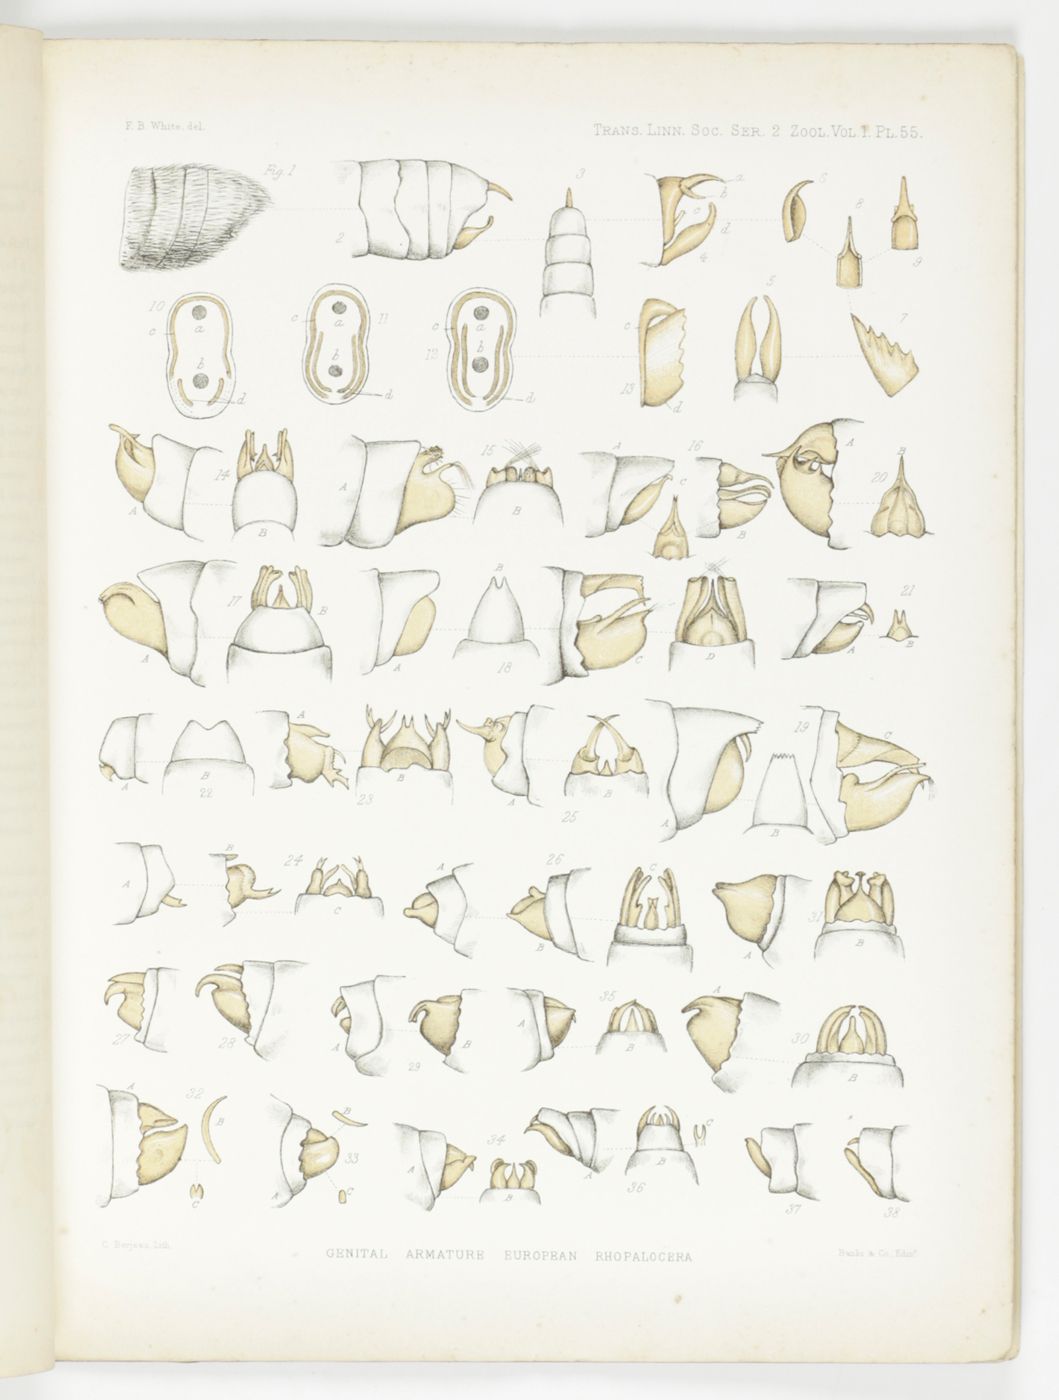 F. B. White, del.
TRANS. LINN. SOC. SER. 2 ZOOL. VOL. I. PL. 55.
Fig. 1
2
3
a
b
c
d
4
6
8
9
10
c
a
b
d
c
a
11
b
d
c
a
12
b
d
c
13
d
5
7
A
14
B
A
15
B
A
C
16
B
A
B
20
A
17
B
A
B
18
C
D
A
21
B
A
B
22
A
B
23
A
B
25
A
B
19
C
A
B
24
C
A
26
B
C
A
31
B
27
28
A
29
B
A
35
B
A
30
B
A
32
B
C
A
B
33
C
A
34
B
A
B
36
C
37
38
C. Berjeau, Lith.
GENITAL ARMATURE EUROPEAN RHOPALOCERA
Banks & Co., Edinr.